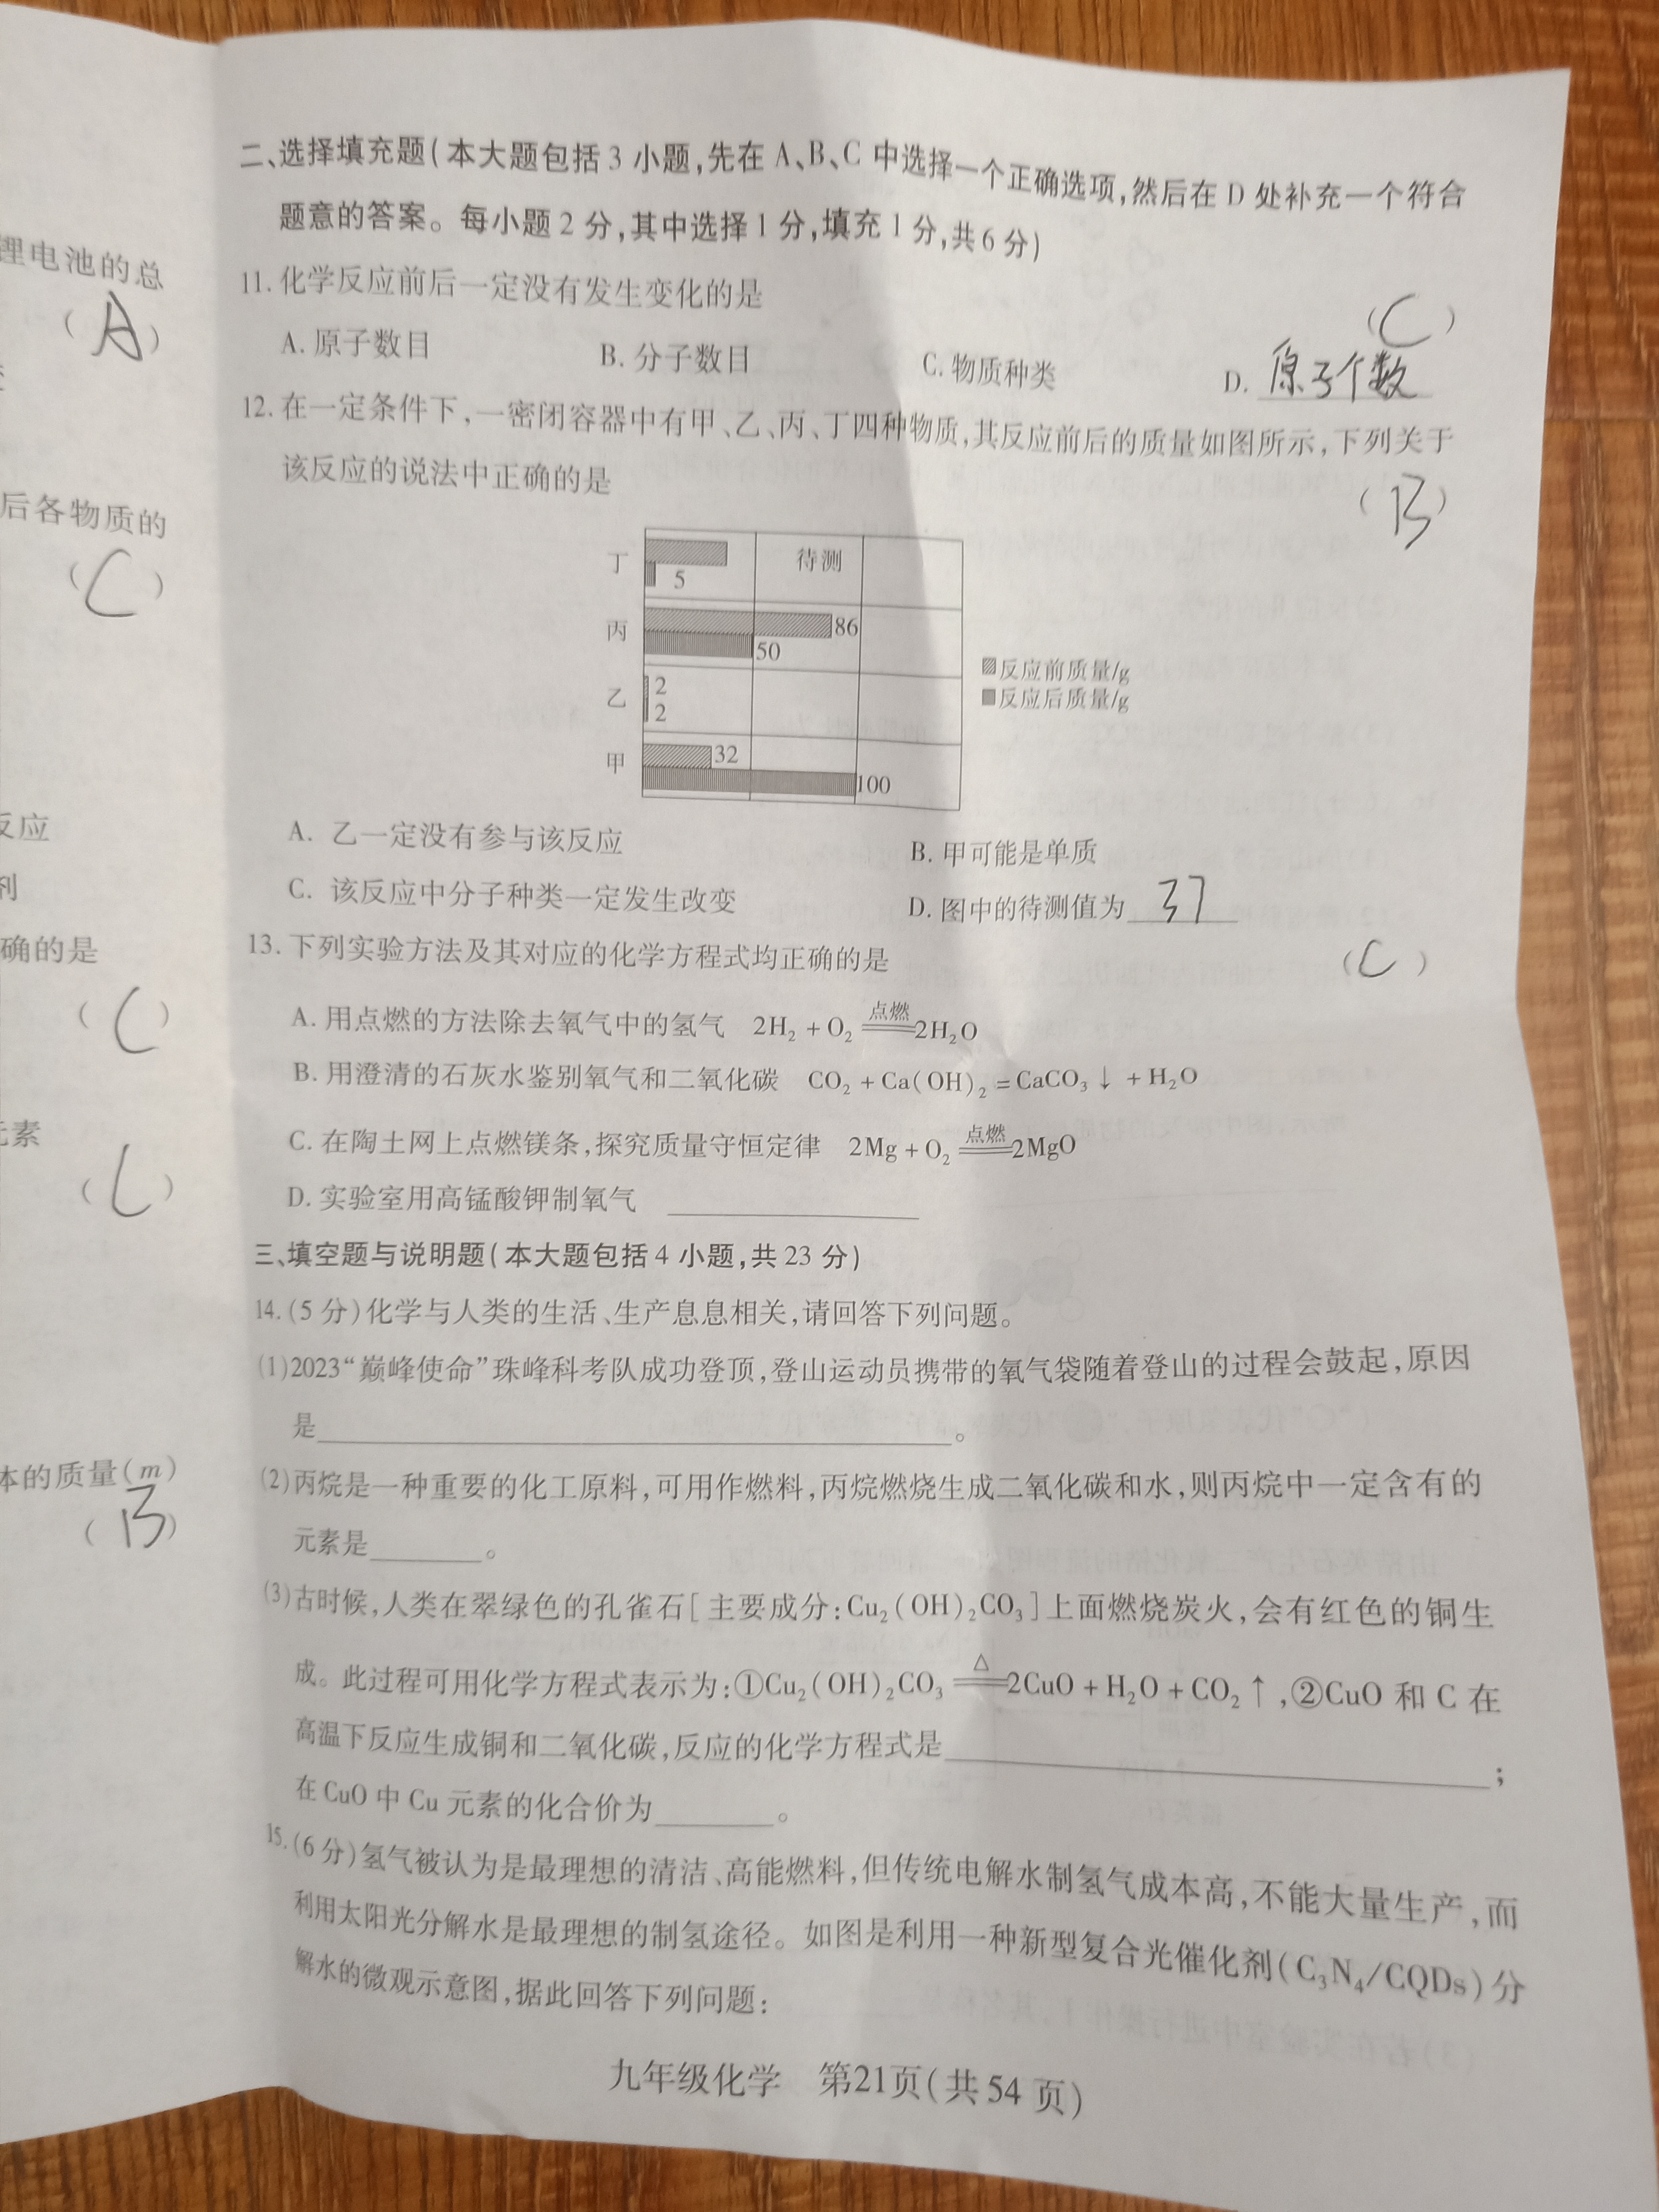 锂电池的总
(A)
后各物质的
(C)
反应
剂
确的是
(C)
元素
(C)
体的质量(m)
(B)
二、选择填充题(本大题包括3小题,先在A、B、C中选择一个正确选项,然后在D处补充一个符合
题意的答案。每小题2分,其中选择1分,填充1分,共6分)
11.化学反应前后一定没有发生变化的是 (C)
A.原子数目 B.分子数目 C.物质种类 D.原子个数
12.在一定条件下,一密闭容器中有甲、乙、丙、丁四种物质,其反应前后的质量如图所示,下列关于
该反应的说法中正确的是 (B)
丁 待测
5
丙 86
50
乙 2
2
甲 32
100
反应前质量/g
反应后质量/g
A. 乙一定没有参与该反应 B. 甲可能是单质
C. 该反应中分子种类一定发生改变 D. 图中的待测值为 37
13.下列实验方法及其对应的化学方程式均正确的是 (C)
A.用点燃的方法除去氧气中的氢气 2H₂+O₂ 点燃══ 2H₂O
B.用澄清的石灰水鉴别氧气和二氧化碳 CO₂+Ca(OH)₂=CaCO₃↓+H₂O
C.在陶土网上点燃镁条,探究质量守恒定律 2Mg+O₂ 点燃══ 2MgO
D.实验室用高锰酸钾制氧气
三、填空题与说明题(本大题包括4小题,共23分)
14.(5分)化学与人类的生活、生产息息相关,请回答下列问题。
(1)2023“巅峰使命”珠峰科考队成功登顶,登山运动员携带的氧气袋随着登山的过程会鼓起,原因
是 。
(2)丙烷是一种重要的化工原料,可用作燃料,丙烷燃烧生成二氧化碳和水,则丙烷中一定含有的
元素是 。
(3)古时候,人类在翠绿色的孔雀石[主要成分:Cu₂(OH)₂CO₃]上面燃烧炭火,会有红色的铜生
成。此过程可用化学方程式表示为:①Cu₂(OH)₂CO₃ △══ 2CuO+H₂O+CO₂↑,②CuO和C在
高温下反应生成铜和二氧化碳,反应的化学方程式是 ;
在CuO中Cu元素的化合价为 。
15.(6分)氢气被认为是最理想的清洁、高能燃料,但传统电解水制氢气成本高,不能大量生产,而
利用太阳光分解水是最理想的制氢途径。如图是利用一种新型复合光催化剂(C₃N₄/CQDs)分
解水的微观示意图,据此回答下列问题:
九年级化学 第21页(共54页)